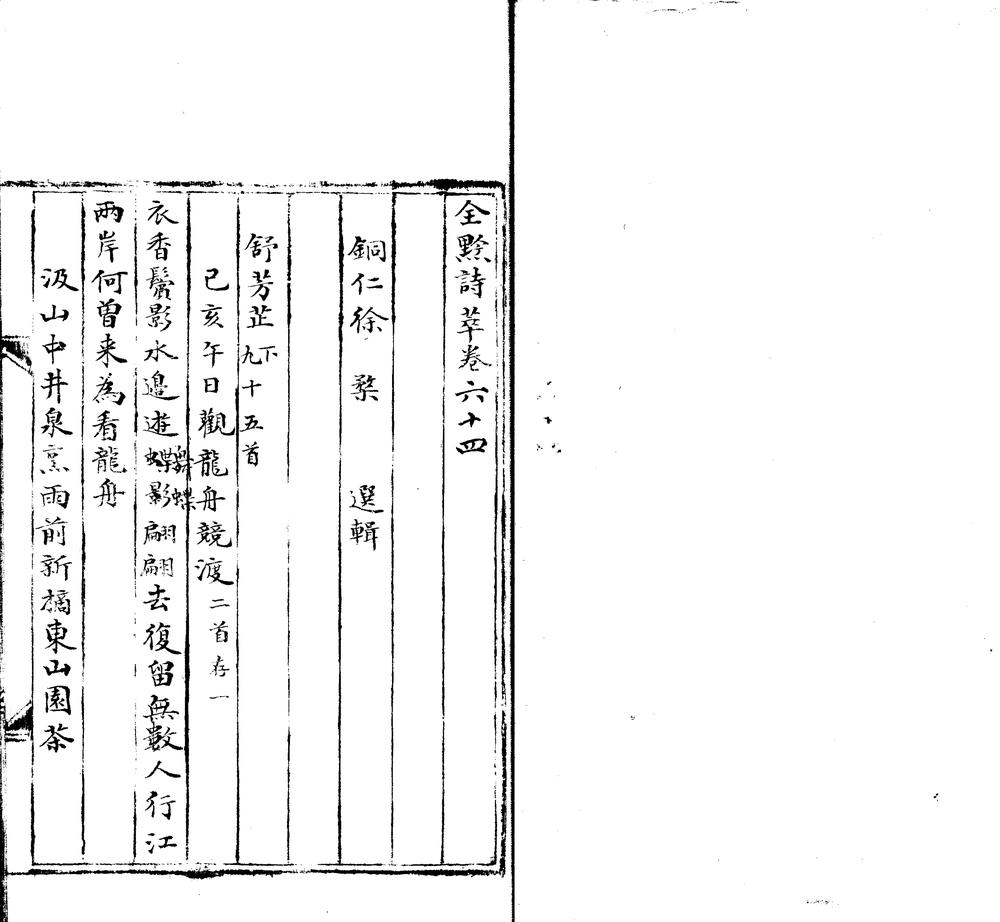 全黔詩萃卷六十四
銅仁徐楘選輯
舒芳芷下九十五首
己亥午日觀龍舟競渡二首存一
衣香鬢影水邊遊蝶影翩翩去復留無數人行江
舞蝶
兩岸何曾来為看龍舟
汲山中井泉烹雨前新摘東山園茶